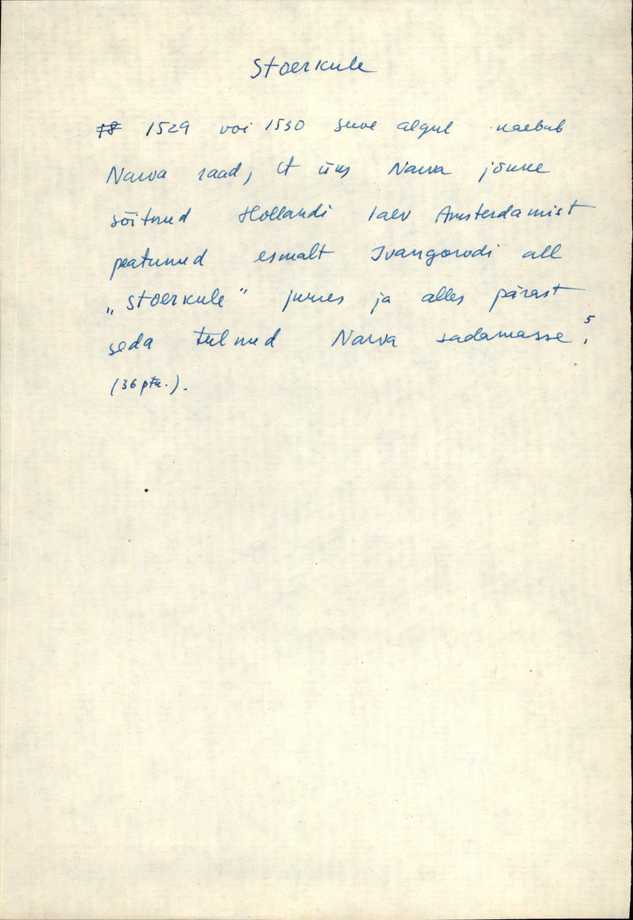 Stoerkule
1529 või 1530 suve algul kaebab
Narva raad, et üks Narva jõune
sõitnud Hollandi laev Amsterdamist
peatunud esmalt Ivangorodi all
„Stoerkule" juures ja alles pärast
seda tulnud Narva sadamasse 5.
(36 ptk.).